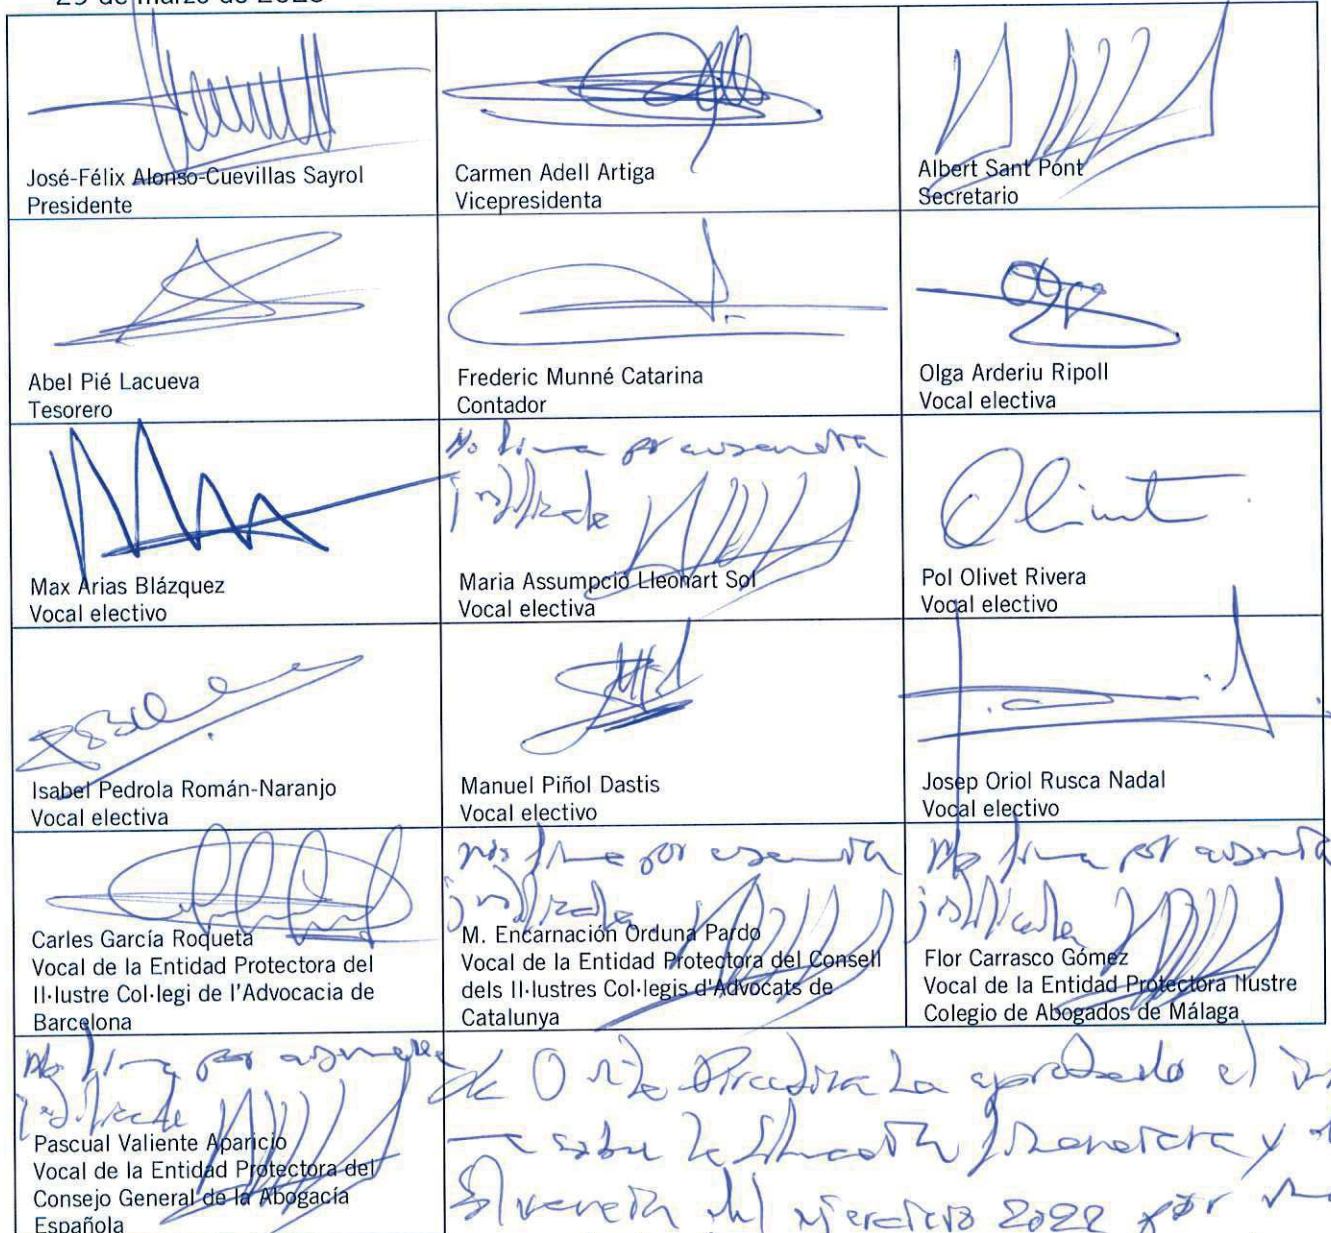 29 de marzo de 2023
José-Félix Alonso-Cuevillas Sayrol
Presidente
Carmen Adell Artiga
Vicepresidenta
Albert Sant Pont
Secretario
Abel Pié Lacueva
Tesorero
Frederic Munné Catarina
Contador
Olga Arderiu Ripoll
Vocal electiva
Max Arias Blázquez
Vocal electivo
No firma por ausencia
justificada
Maria Assumpció Lleonart Sol
Vocal electiva
Olivet
Pol Olivet Rivera
Vocal electivo
Isabel Pedrola Román-Naranjo
Vocal electiva
Manuel Piñol Dastis
Vocal electivo
Josep Oriol Rusca Nadal
Vocal electivo
Carles García Roqueta
Vocal de la Entidad Protectora del
Il·lustre Col·legi de l'Advocacia de
Barcelona
No firma por ausencia
justificada
M. Encarnación Orduna Pardo
Vocal de la Entidad Protectora del Consell
dels Il·lustres Col·legis d'Advocats de
Catalunya
No firma por ausencia
justificada
Flor Carrasco Gómez
Vocal de la Entidad Protectora Ilustre
Colegio de Abogados de Málaga
No firma por ausencia
justificada
Pascual Valiente Aparicio
Vocal de la Entidad Protectora del
Consejo General de la Abogacía
Española
Directiva ha aprobado el
sobre la situación financiera y
solvencia del ejercicio 2022 por